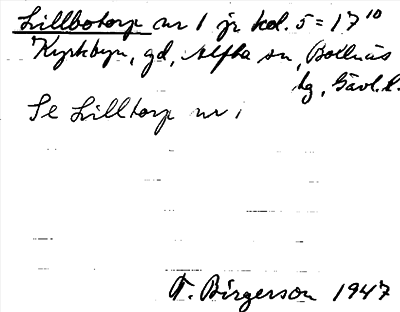 Lillbotorp nr 1 jr kol. 5 = 17¹⁰
Kyrkbyn, gd, Alfta sn, Bollnäs
tg, Gävl. l.
Se Lilltorp nr 1
T. Birgerson 1947